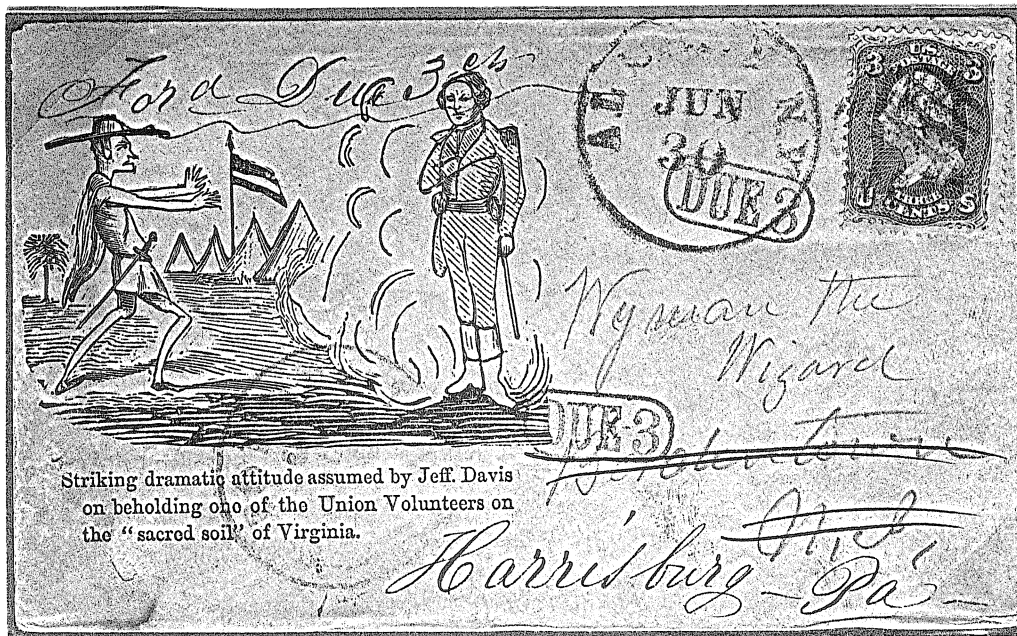 Ford Due 3 cts
AL
JUN
30
DUE 3
3 3
U.S.
POSTAGE
CENTS
Wyman the
Wizard
DUE 3
N.J.
Harrisburg - Pa -
Striking dramatic attitude assumed by Jeff. Davis
on beholding one of the Union Volunteers on
the “sacred soil” of Virginia.